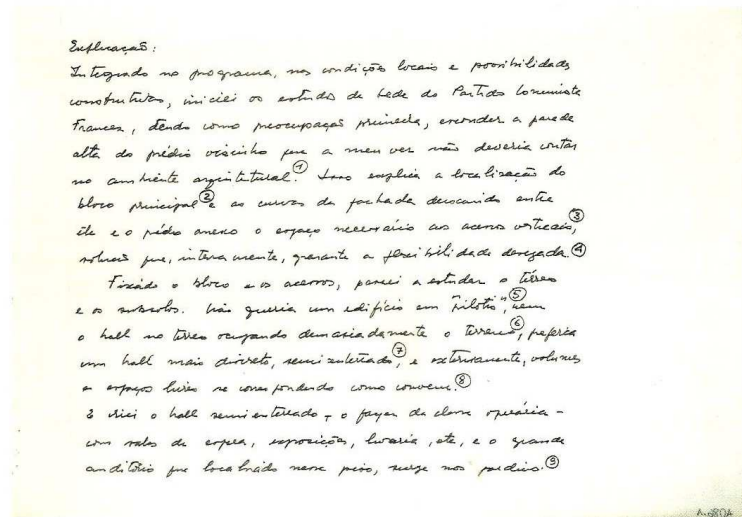 Explicação:
Integrado no programa, nas condições locais e possibilidades
construtivas, iniciei os estudos da Sede do Partido Comunista
Frances, tendo como preocupação primeira, esconder a parede
alta do prédio visinho que a meu ver não deveria contar
no ambiente arquitetural.① Isso explica a localização do
bloco principal② e as curvas da fachada deixando entre
ele e o prédio anexo o espaço necessário aos acessos verticais,③
solução que, internamente, garante a flexibilidade desejada.④
Fixado o bloco e os acessos, passei a estudar o térreo
e os subsolos. Não queria um edifício em "pilotis",⑤ nem
o hall no térreo ocupando demasiadamente o terreno,⑥ preferia
um hall mais discreto, semienterrado,⑦ e exteriormente, volumes
e espaços livres se correspondendo como convem.⑧
E criei o hall semienterrado – o foyer da classe operária –
com salas de espera, exposições, livraria, etc, e o grande
auditório que localizado nesse piso, surge nos jardins.⑨